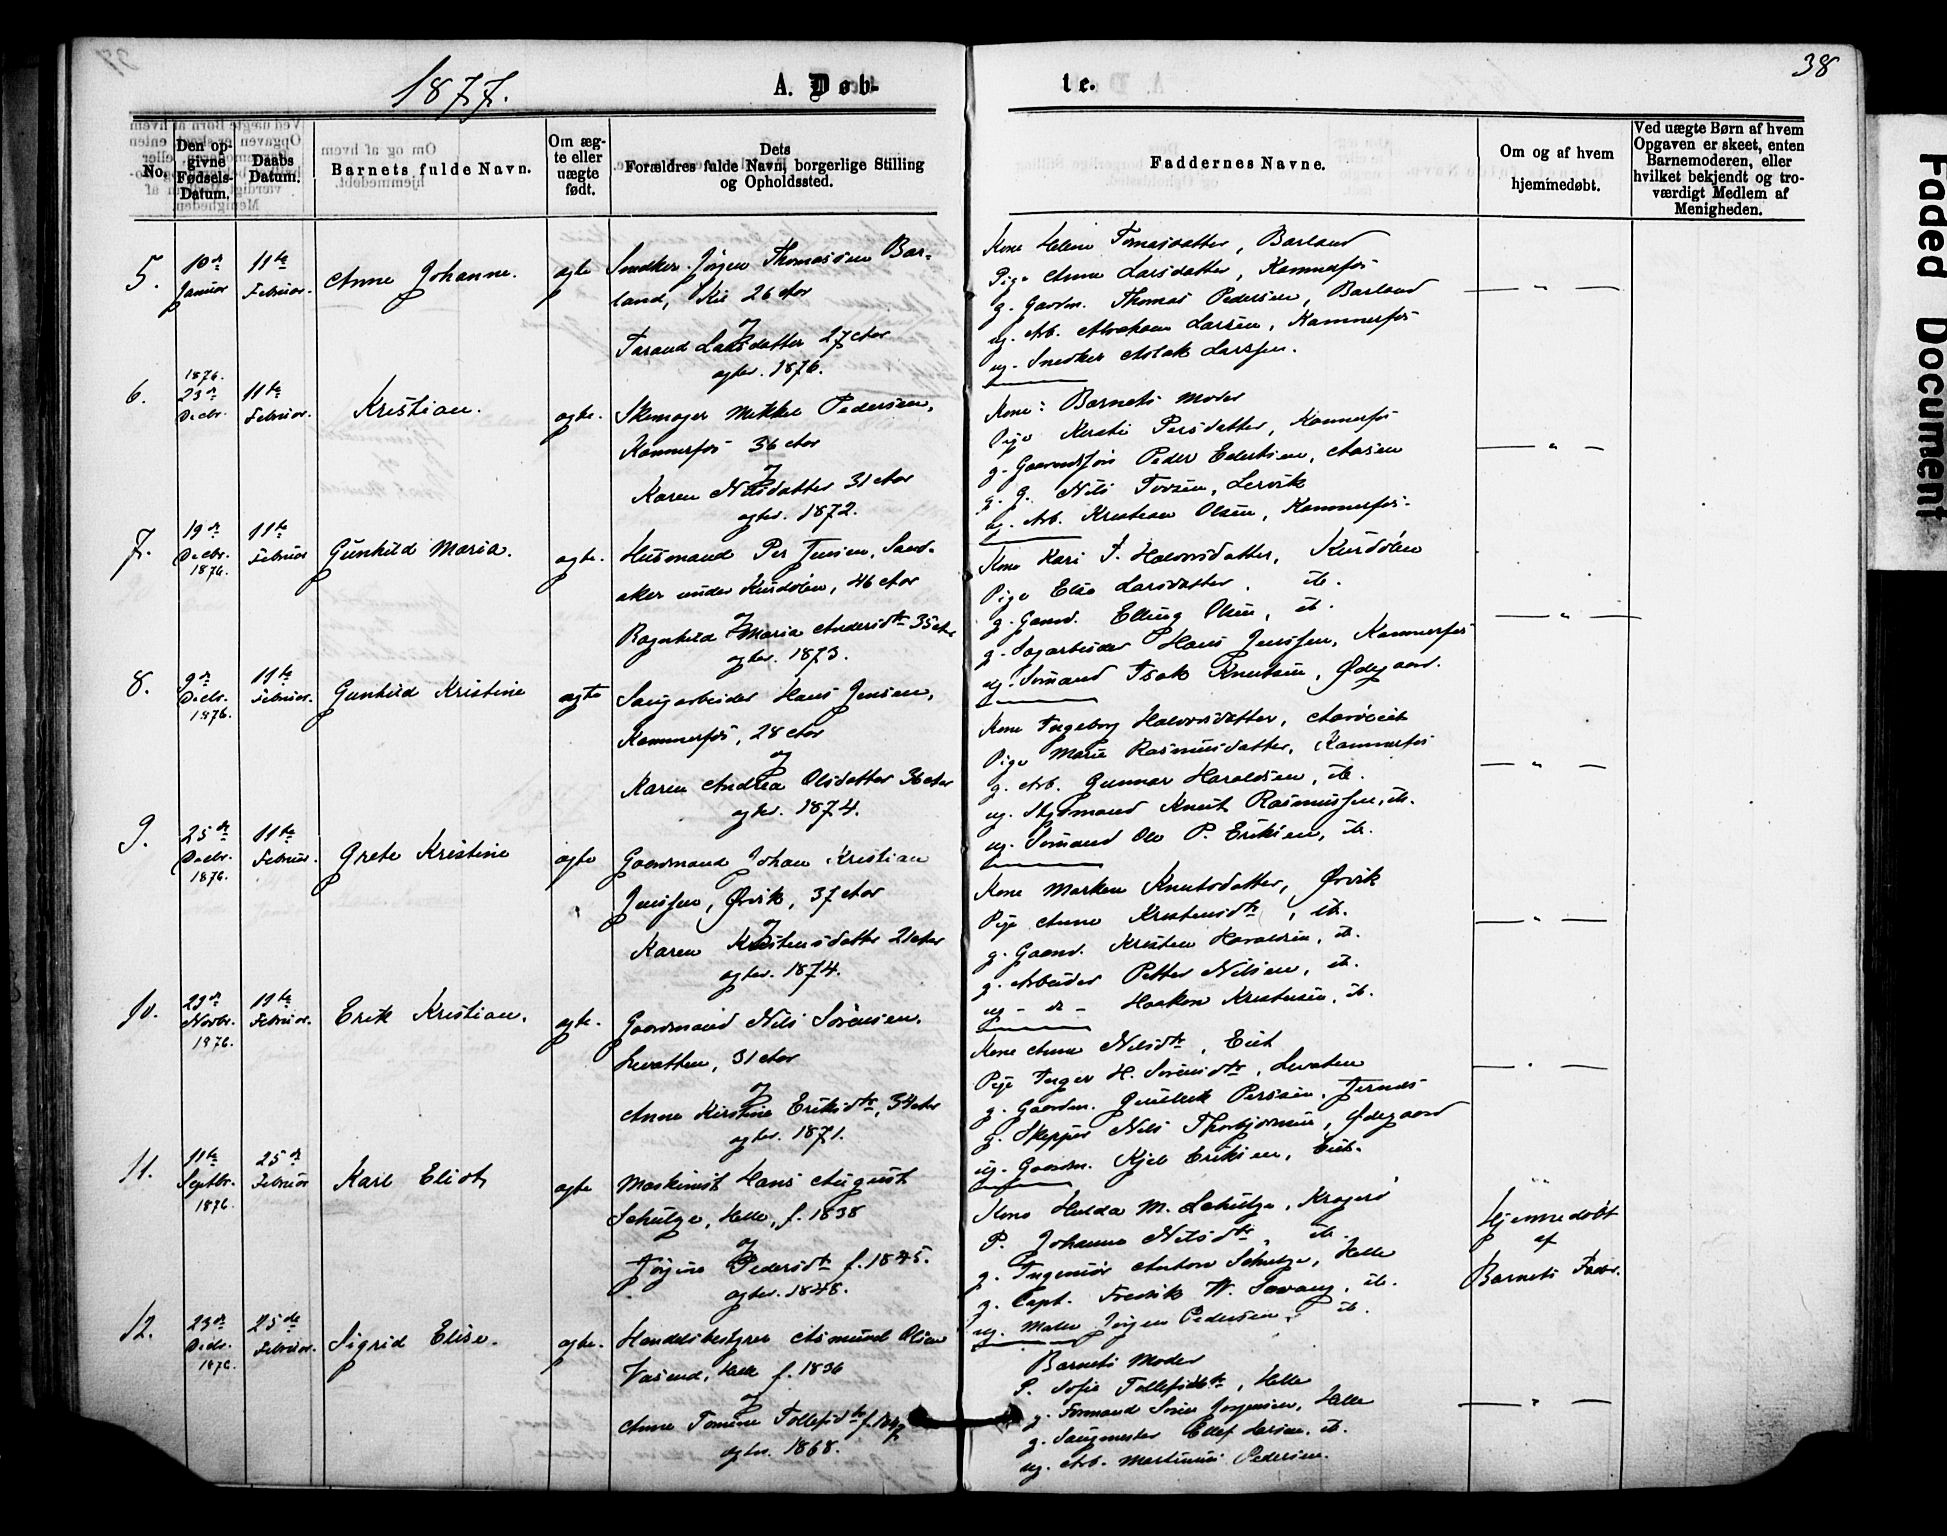 38
1877.
A. Døb-
te.
No.
Den op-
givne
Fødsels-
Datum.
Daabs
Datum.
Barnets fulde Navn.
Om æg-
te eller
uægte
født.
Dets
Forældres fulde Navn, borgerlige Stilling
og Opholdssted.
Faddernes Navne.
Om og af hvem
hjemmedøbt.
Ved uægte Børn af hvem
Opgaven er skeet, enten
Barnemoderen, eller
hvilket bekjendt og tro-
værdigt Medlem af
Menigheden.
5.
10de
Januar
11te
Februar.
Anne Johanne.
ægte
Snedker Jørgen Thomassen Bar-
land, 26 Aar
og
Taraud Larsdatter 27 Aar
ægtev. 1876.
Kone Helene Tomasdatter, Barland
Pige Anne Larsdatter, Kammerfos
g. Gaardm. Thomas Pedersen, Barland
ug. Arb. Abraham Larsen, Kammerfos
ug. Snedker Aslak Larssen.
— " —
6.
1876.
23de
Decbr.
11te
Februar.
Kristian.
ægte.
Skomager Mikkel Pedersen,
Kammerfos 36 Aar
og
Karen Nilsdatter 31 Aar
ægtev. 1872.
Kone: Barnets Moder
Pige Kersti Persdatter, Kammerfos
g. Peder Aasen
g. G. Nils Tovsen, Lervik
ug. Arb. Kristian Olsen, Kammerfos.
— " —
7.
19de
Decbr.
1876.
11te
Februar
Gunhild Maria.
ægte.
Husmand Per Jensen, Sand-
aker under Kurdølen, 46 Aar
og
Ragnhild Maria Andersdtr 35 Aar
ægtev. 1873.
Kone Kari T. Halvorsdatter, Kurdølen
Pige Else Larsdatter, it.
g. Gaard. Elling Olsen, it.
g. Sagarbeider Hans Jenssen, Kammerfos
ug. Sømand Isak Knutsen, Ødegaard.
— " —
8.
9de
Decbr.
1876.
11te
Februar.
Gunhild Kristine
ægte
Saugarbeider Hans Jensen,
Kammerfos, 28 Aar
og
Karen Andrea Olsdatter 36 Aar
ægtev. 1874.
Kone Ingeborg Halvorsdatter,
Pige Marie Rasmusdatter, Kammerfos
g. Arb. Gunnar Haraldsen, it.
ug. Styrmand Knut Rasmussen, it.
ug. Sømand Ole P. Eriksen, it.
— " —
9.
25de
Decbr.
1876.
11te
Februar.
Grete Kristine
ægte
Gaardmand Johan Kristian
Jenssen, Ørvik, 37 Aar
og
Karen Kristensdatter 21 Aar
ægtev. 1874.
Kone Marken Knutsdatter, Ørvik
Pige Anne Kristensdtr, it.
g. Gaard. Kristen Haraldsen, it.
g. Arbeider Petter Nilsen, it.
ug. – do – Haaken Kristensen, it.
— " —
10.
29de
Novbr.
1876.
11te
Februar.
Erik Kristian.
ægte.
Gaardmand Nils Sørensen,
Levatten, 31 Aar
og
Anne Kirstine Eriksdtr, 34 Aar
ægtev. 1871.
Kone Anne Nilsdtr, Eiet
Pige Inger H. Sørensdtr, Levaten
g. Gaardm. Persen,
g. Skipper Nils Thorbjørnsen, Ødegaard
ug. Gaardm. Kjel Eriksen, Eiet.
— " —
11.
11te
Septbr.
1876.
25de
Februar
Karl Eliot,
ægte
Maskinist Hans August
Schultze, Helle, f. 1838
og
Jørgine Pedersdtr f. 1845.
ægtev.
Kone Hulda M. Schultze, Kragerø
P. Johanne Nilsdtr, it.
g. Ingeniør Anton Schultze, Helle
g. Capt. Fredrik W. it.
ug. Maler Jørgen Pedersen, it.
Hjemmedøbt
af
Barnets Fader.
12.
23de
Decbr.
1876.
25de
Februar.
Sigrid Elise.
ægte.
Handelsbestyrer Asmund Olsen
Helle f. 1836
og
Anne Tomine Tollefsdtr
ægtev. 1868.
Barnets Moder
P. Sofie Tollefsdtr, Helle
g. Formand Søren Jørgensen, Helle
g. Saugmester Ellef Larsen, it.
ug. Arb. Martinius Pedersen.
— " —
Faded Document